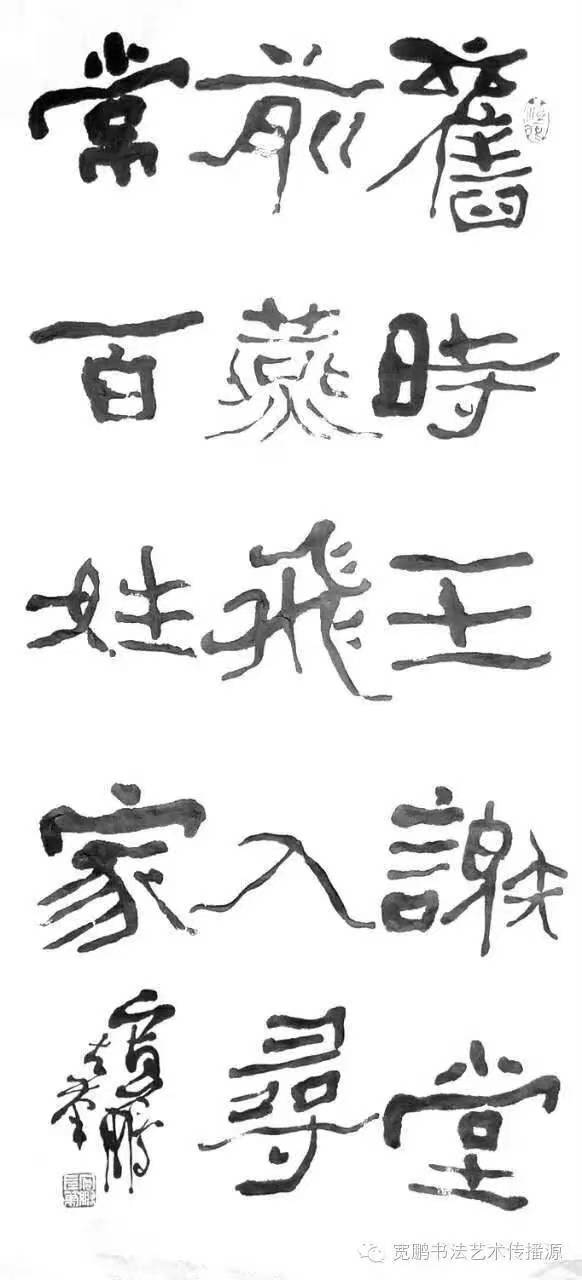 舊時王謝堂
前燕飛入尋
常百姓家
寬鵬
宽鹏书法艺术传播源